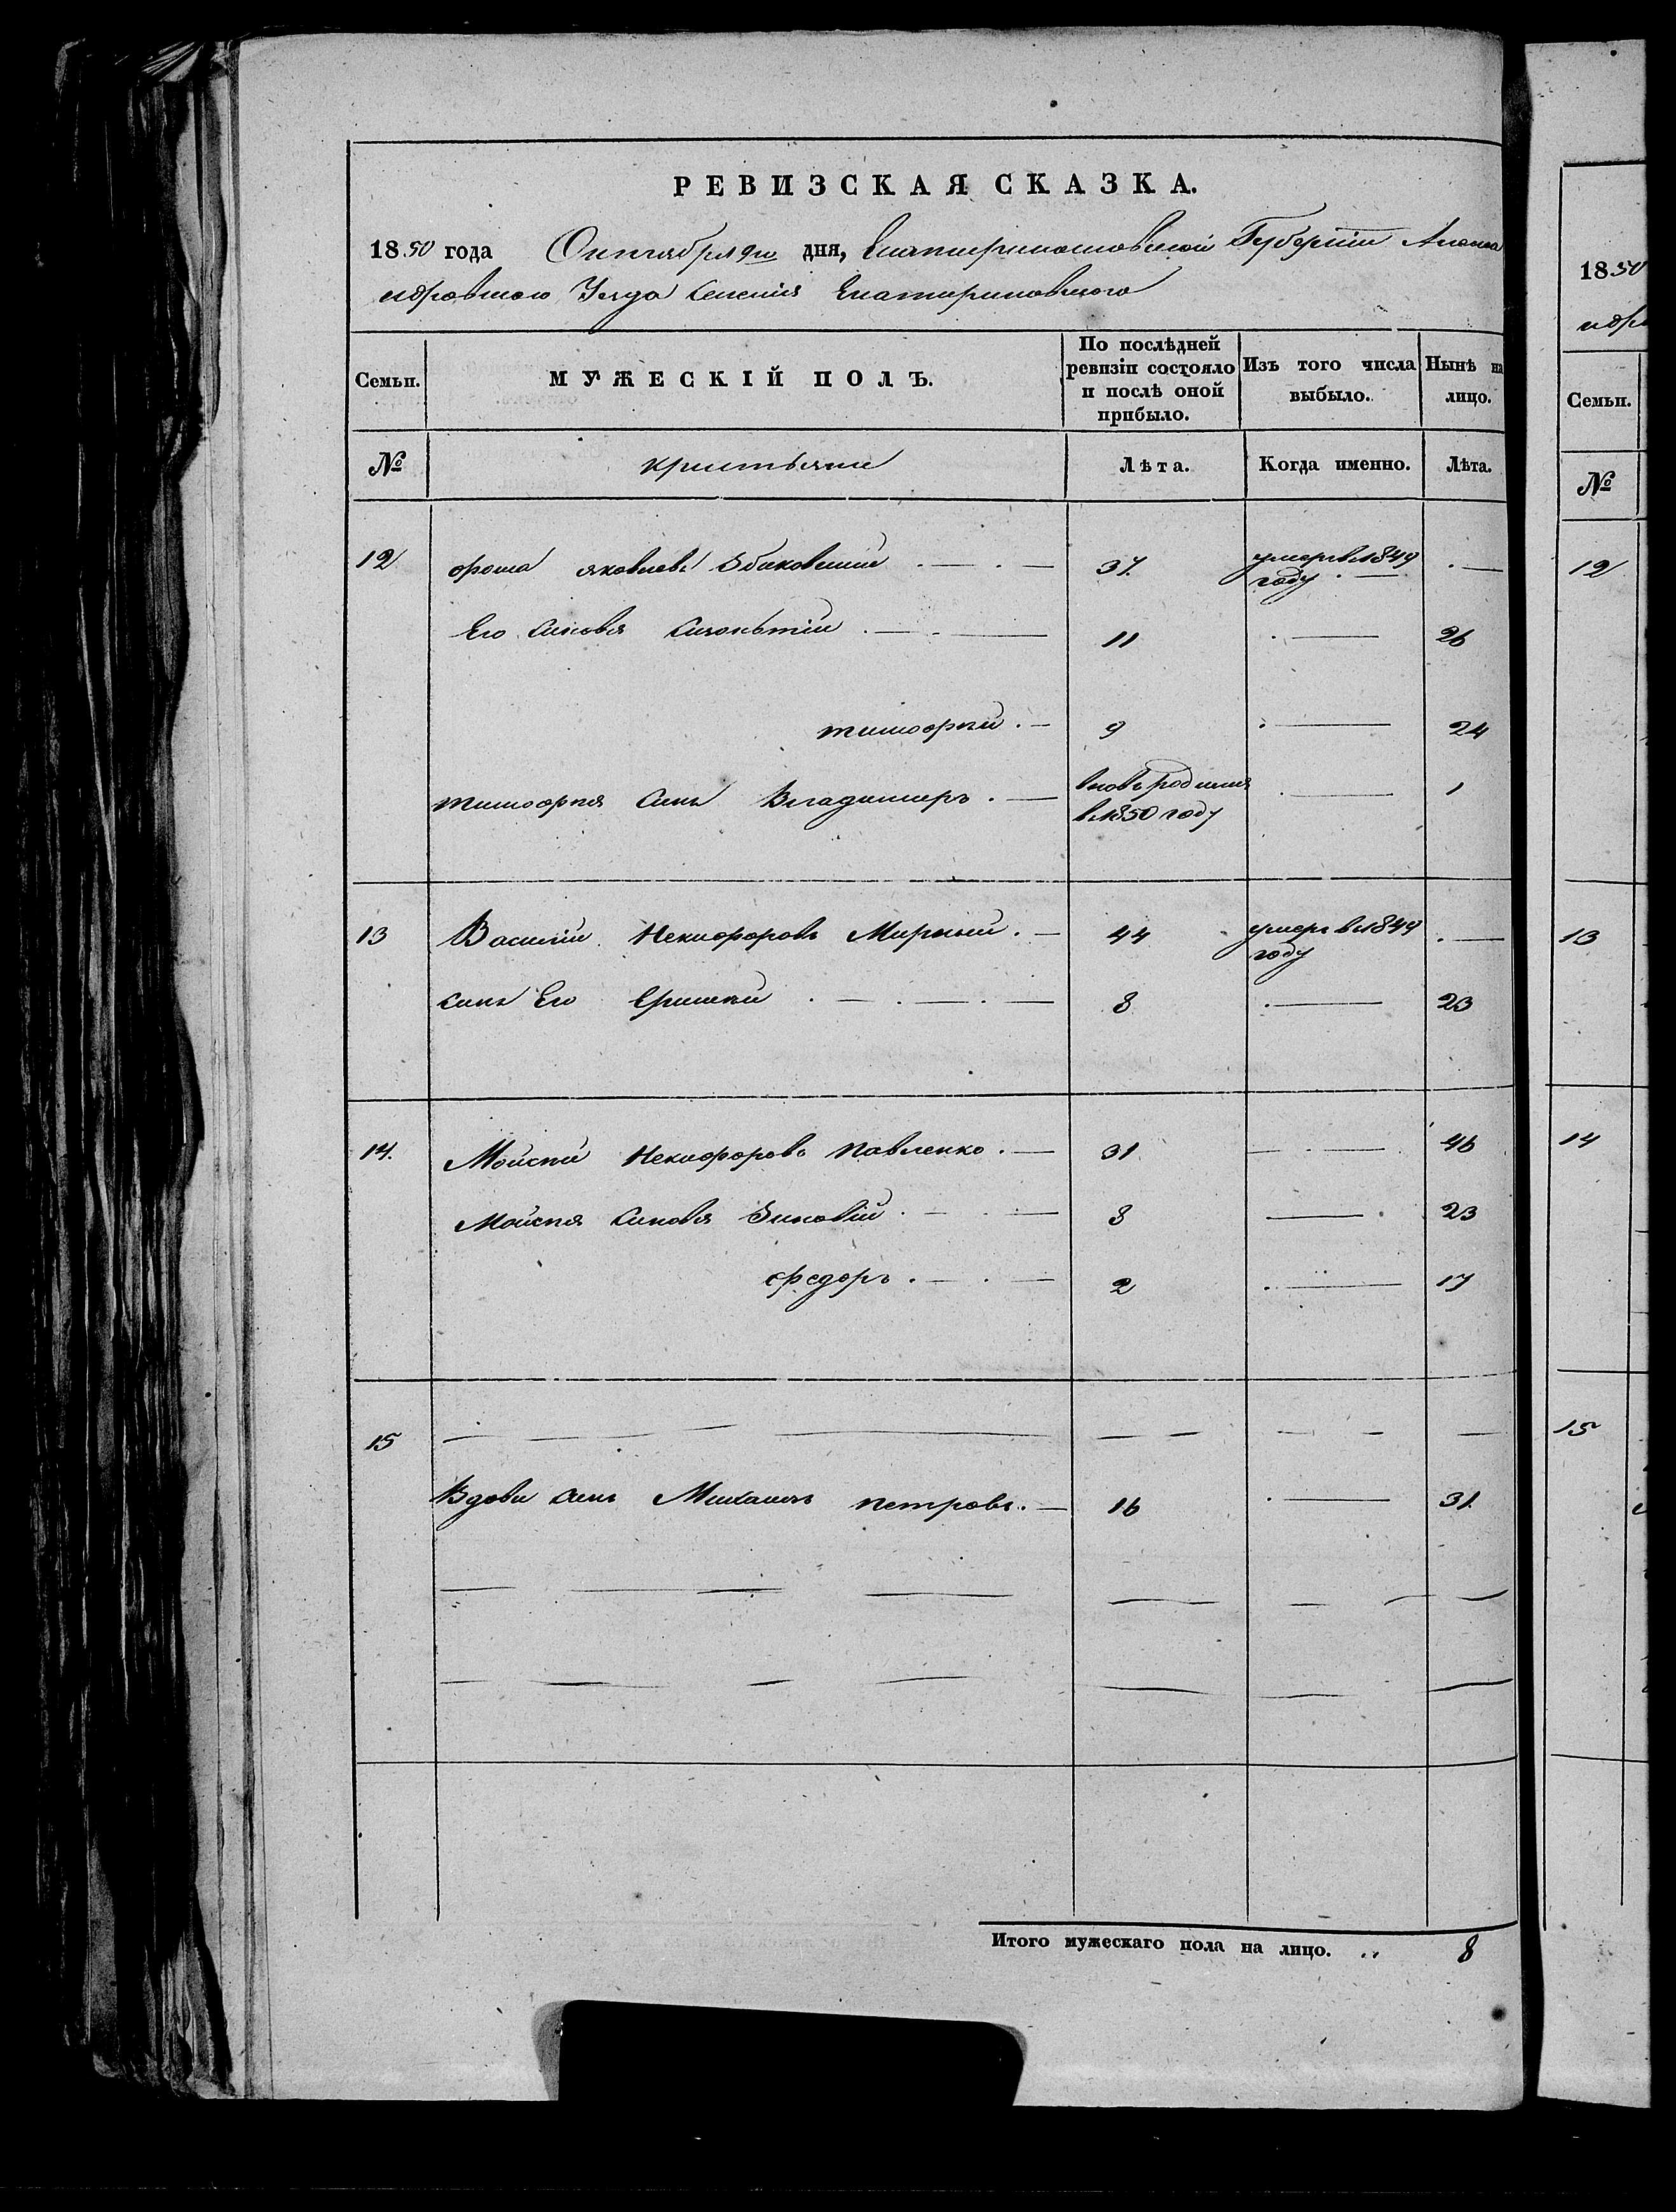 РЕВИЗСКАЯ СКАЗКА.
1850 года Октября 9го дня, Екатеринославской Губернии Алекса
ндровского Уезда Селения Екатериновского
Семьи. МУЖЕСКІЙ ПОЛЪ. По послѣдней ревизіи состояло и послѣ оной прибыло. Изъ того числа выбыло. Нынѣ на лицо.
№ крестьяне Лѣта. Когда именно. Лѣта.
12 фома яковлевъ 37. умерь в 1849 году . —
Его Синовя 11 26
тимофей . — 9 24
тимофея Синъ Владимеръ . — вновь родился в 1850 году 1
13 Василій Некифоровъ Мирный . — 44 умерь в 1849 году . —
синъ Его 8 23
14. Мойсей Некифоровъ Павленко . — 31 46
Мойсея Синовя Зиновій 8 23
федоръ 2 17
15
Вдови Синъ Михаилъ петровъ . — 16 31.
Итого мужескаго пола на лицо. .. 8
1850
ндр
Семьи.
№
12
13
14
15